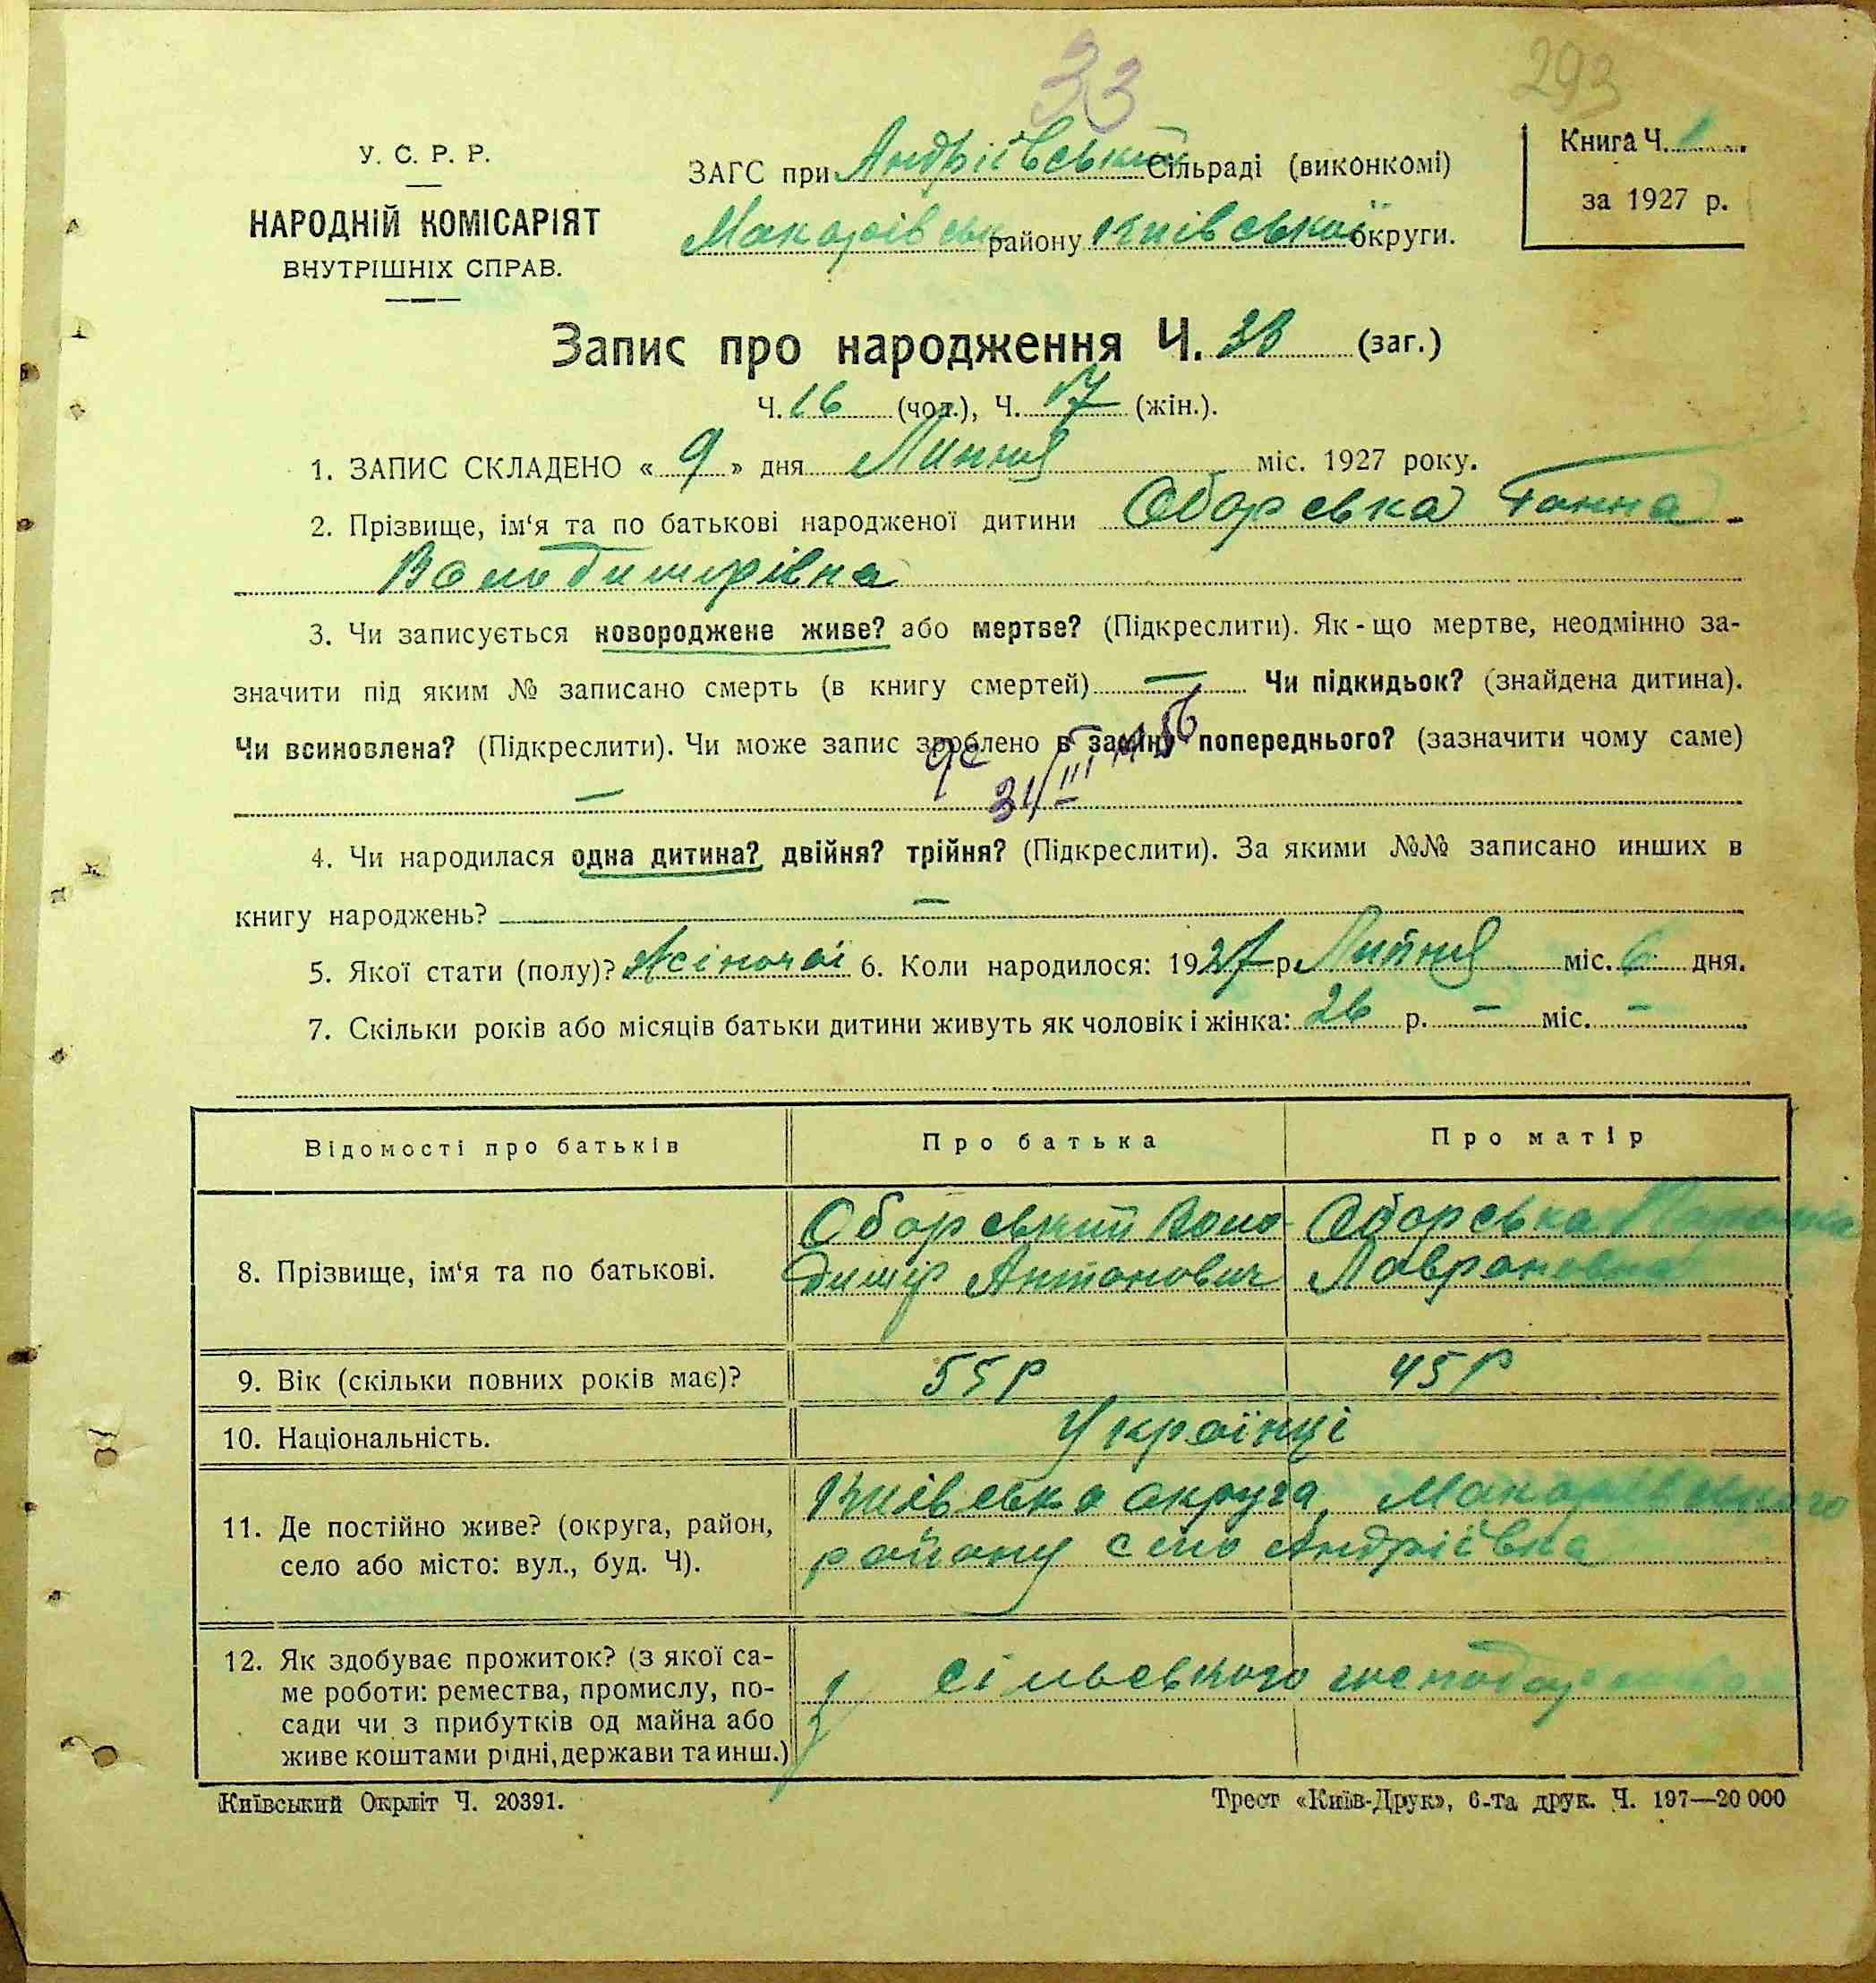 33
293
У. С. Р. Р.
НАРОДНІЙ КОМІСАРІЯТ
ВНУТРІШНІХ СПРАВ.
ЗАГС при Андріївський Сільраді (виконкомі)
Макарівськ району Київської округи.
Книга Ч. 1
за 1927 р.
Запис про народження Ч. 33 (заг.)
Ч. 16 (чол.), Ч. 17 (жін.).
1. ЗАПИС СКЛАДЕНО « 9 » дня Липня міс. 1927 року.
2. Прізвище, ім'я та по батькові народженої дитини Оборська Ганна
Володимирівна
3. Чи записується новороджене живе? або мертве? (Підкреслити). Як-що мертве, неодмінно за-
значити під яким № записано смерть (в книгу смертей) — Чи підкидьок? (знайдена дитина).
Чи всиновлена? (Підкреслити). Чи може запис зроблено в заміну попереднього? (зазначити чому саме)
— 31/III
4. Чи народилася одна дитина? двійня? трійня? (Підкреслити). За якими №№ записано инших в
книгу народжень? —
5. Якої стати (полу)? Жіночої 6. Коли народилося: 1927 р. Липня міс. 6 дня.
7. Скільки років або місяців батьки дитини живуть як чоловік і жінка: 26 р. — міс. —
Відомості про батьків Про батька Про матір
8. Прізвище, ім'я та по батькові.
Оборський Воло-
димір Антонович
Оборська
Лавроновна
9. Вік (скільки повних років має)? 55р 45р
10. Національність. Українці
11. Де постійно живе? (округа, район,
село або місто: вул., буд. Ч).
Київська округа, Макарівського
району село Андріївка
12. Як здобуває прожиток? (з якої са-
ме роботи: ремества, промислу, по-
сади чи з прибутків од майна або
живе коштами рідні, держави та инш.)
з сільського господарства
Київський Окрліт Ч. 20391.
Трест «Київ-Друк», 6-та друк. Ч. 197—20 000